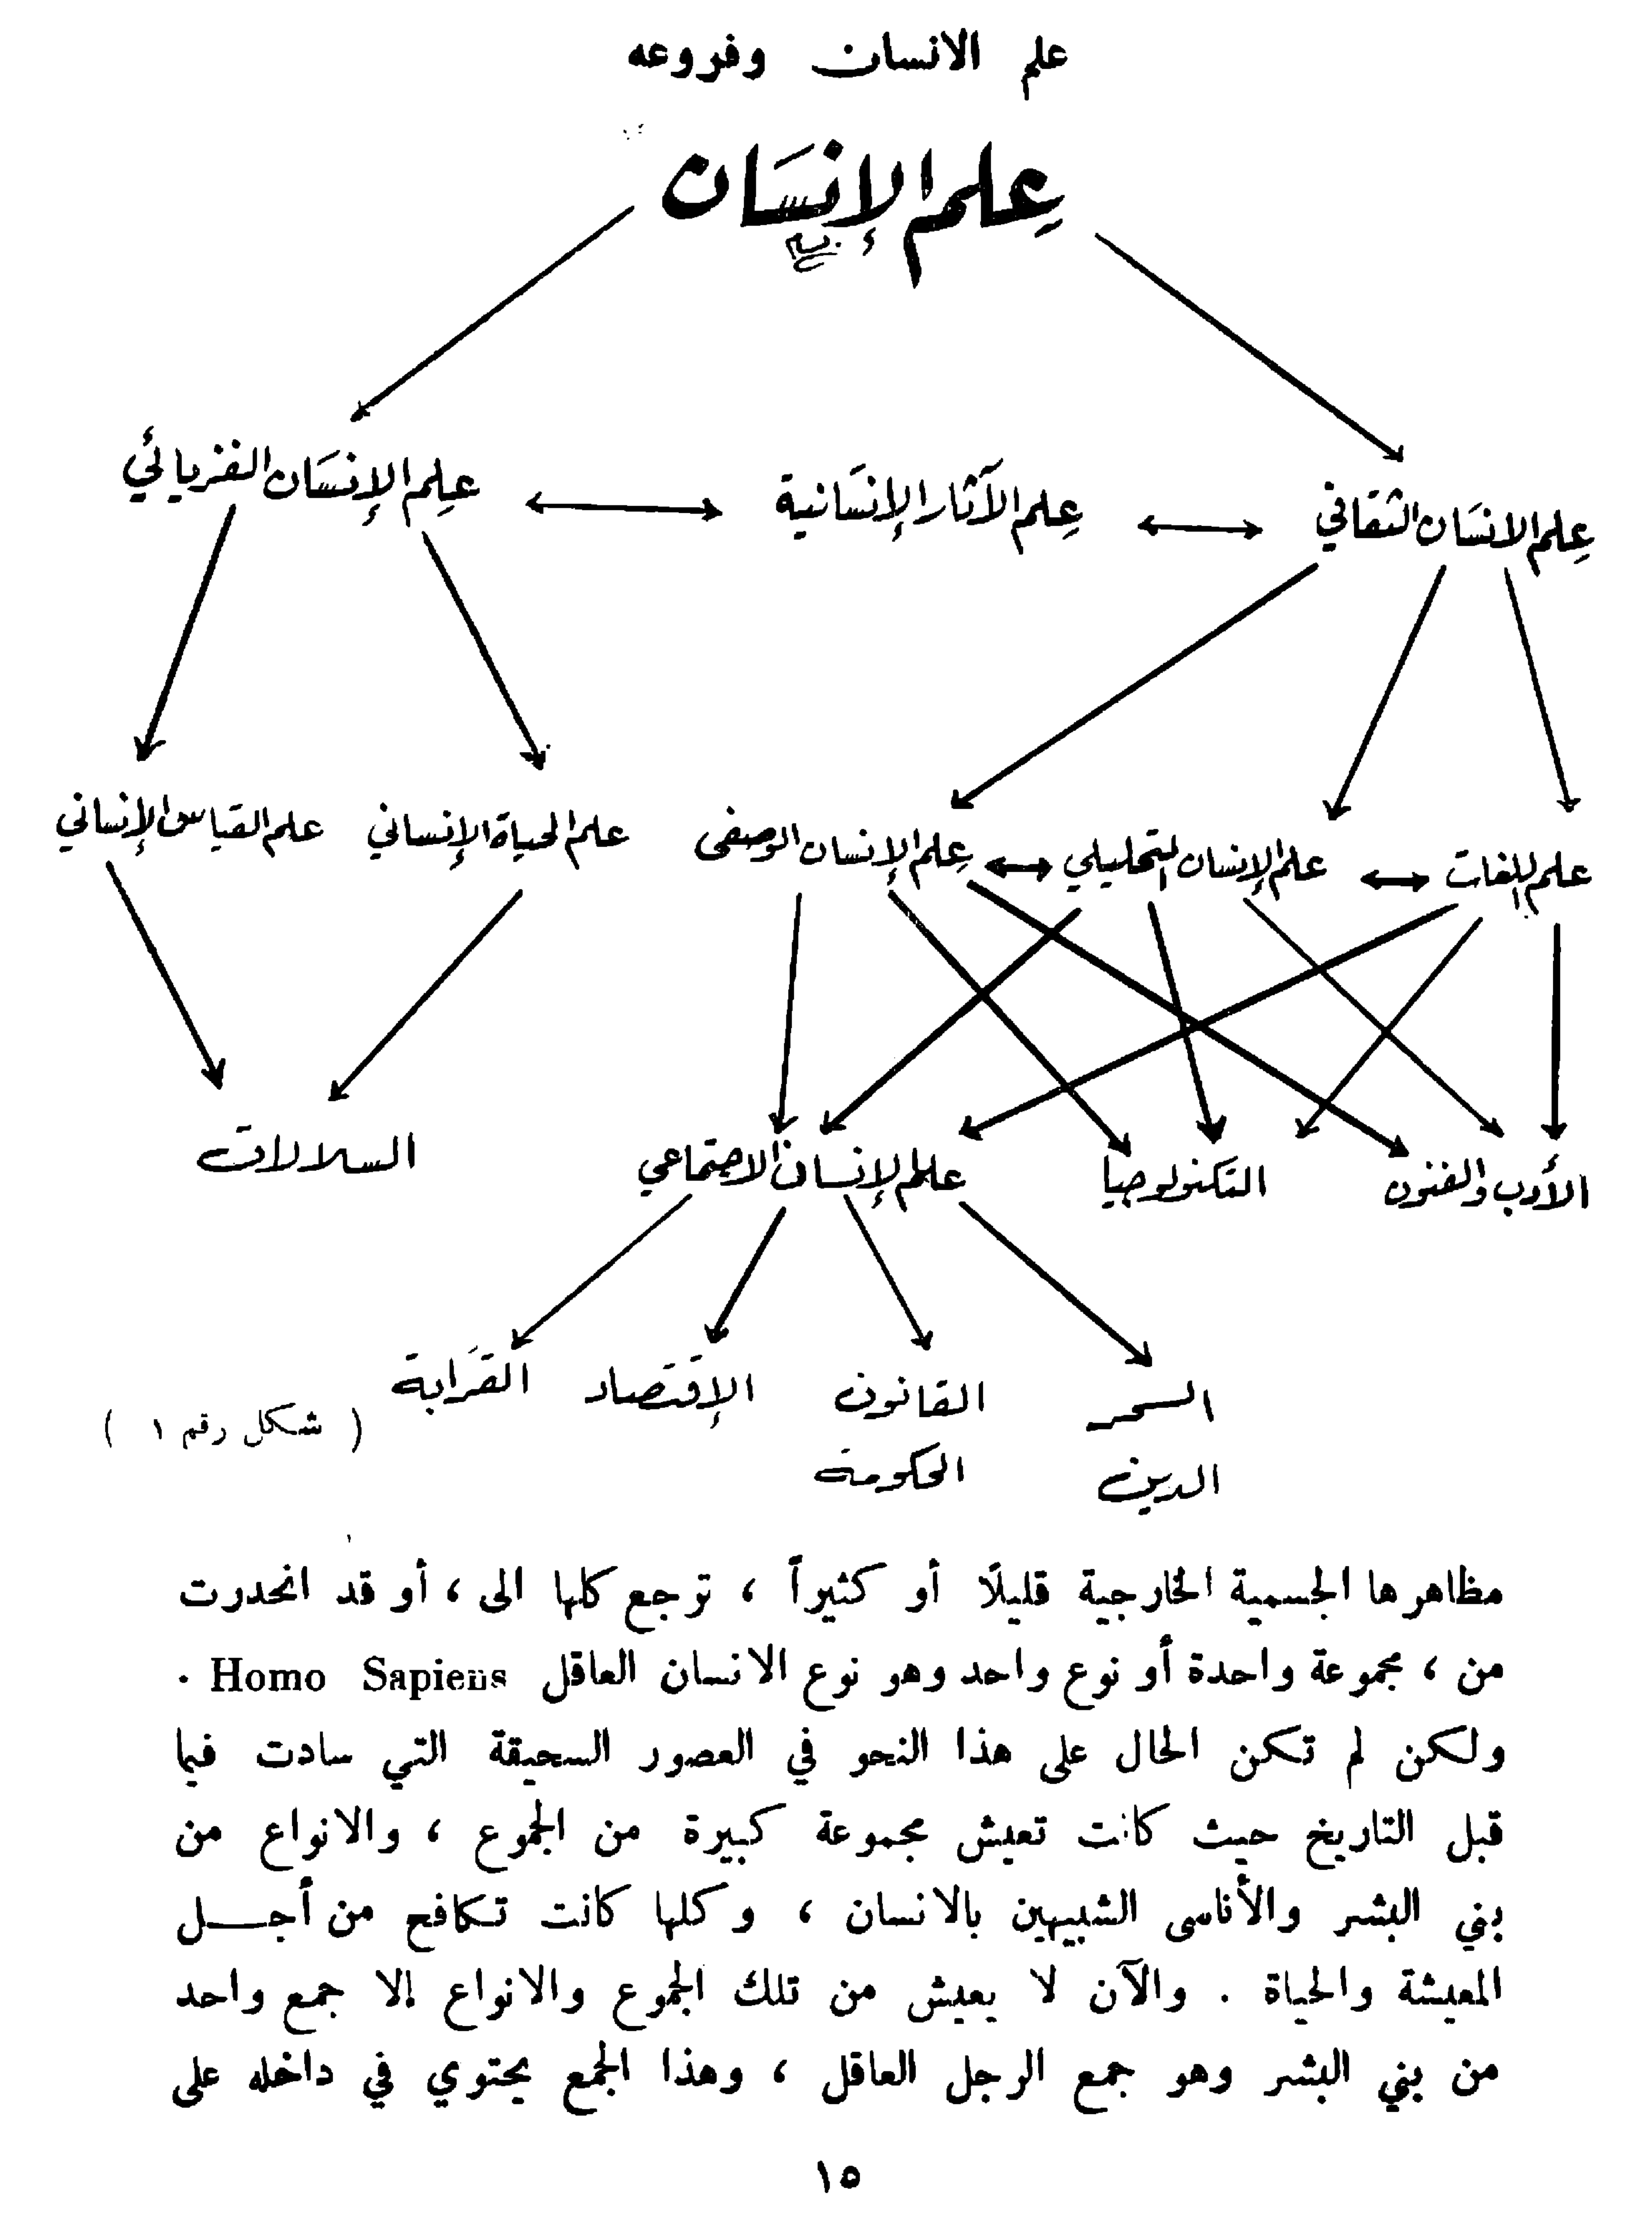 علم الانسان وفروعه
عِلم الإنسَان
علم الإنسَان الفزيائي
عِلم الآثار الإنسَانية
عِلم الانسَان الثقافي
علم القياس الإنساني
علم الحياة الإنساني
عِلم الإنسان الوصفى
علم الإنسان التحليلي
علم اللغات
السلالات
علم الإنسان الاجتماعي
التكنولوجيا
الأدب والفنون
القَرابة
الإقتصاد
القانون
السحر
( شكل رقم ١ )
الحكومة
الدين
مظاهرها الجسمية الخارجية قليلًا أو كثيراً ، ترجع كلها الى ، أو قد انحدرت
من ، مجموعة واحدة أو نوع واحد وهو نوع الانسان العاقل Homo Sapiens .
ولكن لم تكن الحال على هذا النحو في العصور السحيقة التي سادت فيما
قبل التاريخ حيث كانت تعيش مجموعة كبيرة من الجموع ، والانواع من
بني البشر والأناسى الشبيهين بالانسان ، وكلها كانت تكافح من أجـــل
المعيشة والحياة . والآن لا يعيش من تلك الجموع والانواع إلا جمع واحد
من بني البشر وهو جمع الرجل العاقل ، وهذا الجمع يحتوي في داخله على
١٥